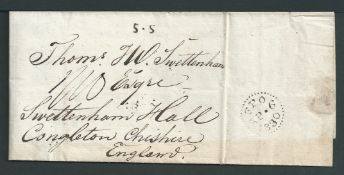 5·5
Thomˢ W. Swettenham
Esqre
Swettenham Hall
Congleton Chishire
England.